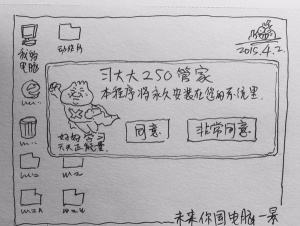 我的
电脑
动作片
2015.4.2.
习大大250管家
本程序将永久安装在您的系统里.
同意
非常同意
好好学习
天天正能量.
未来你国电脑一景